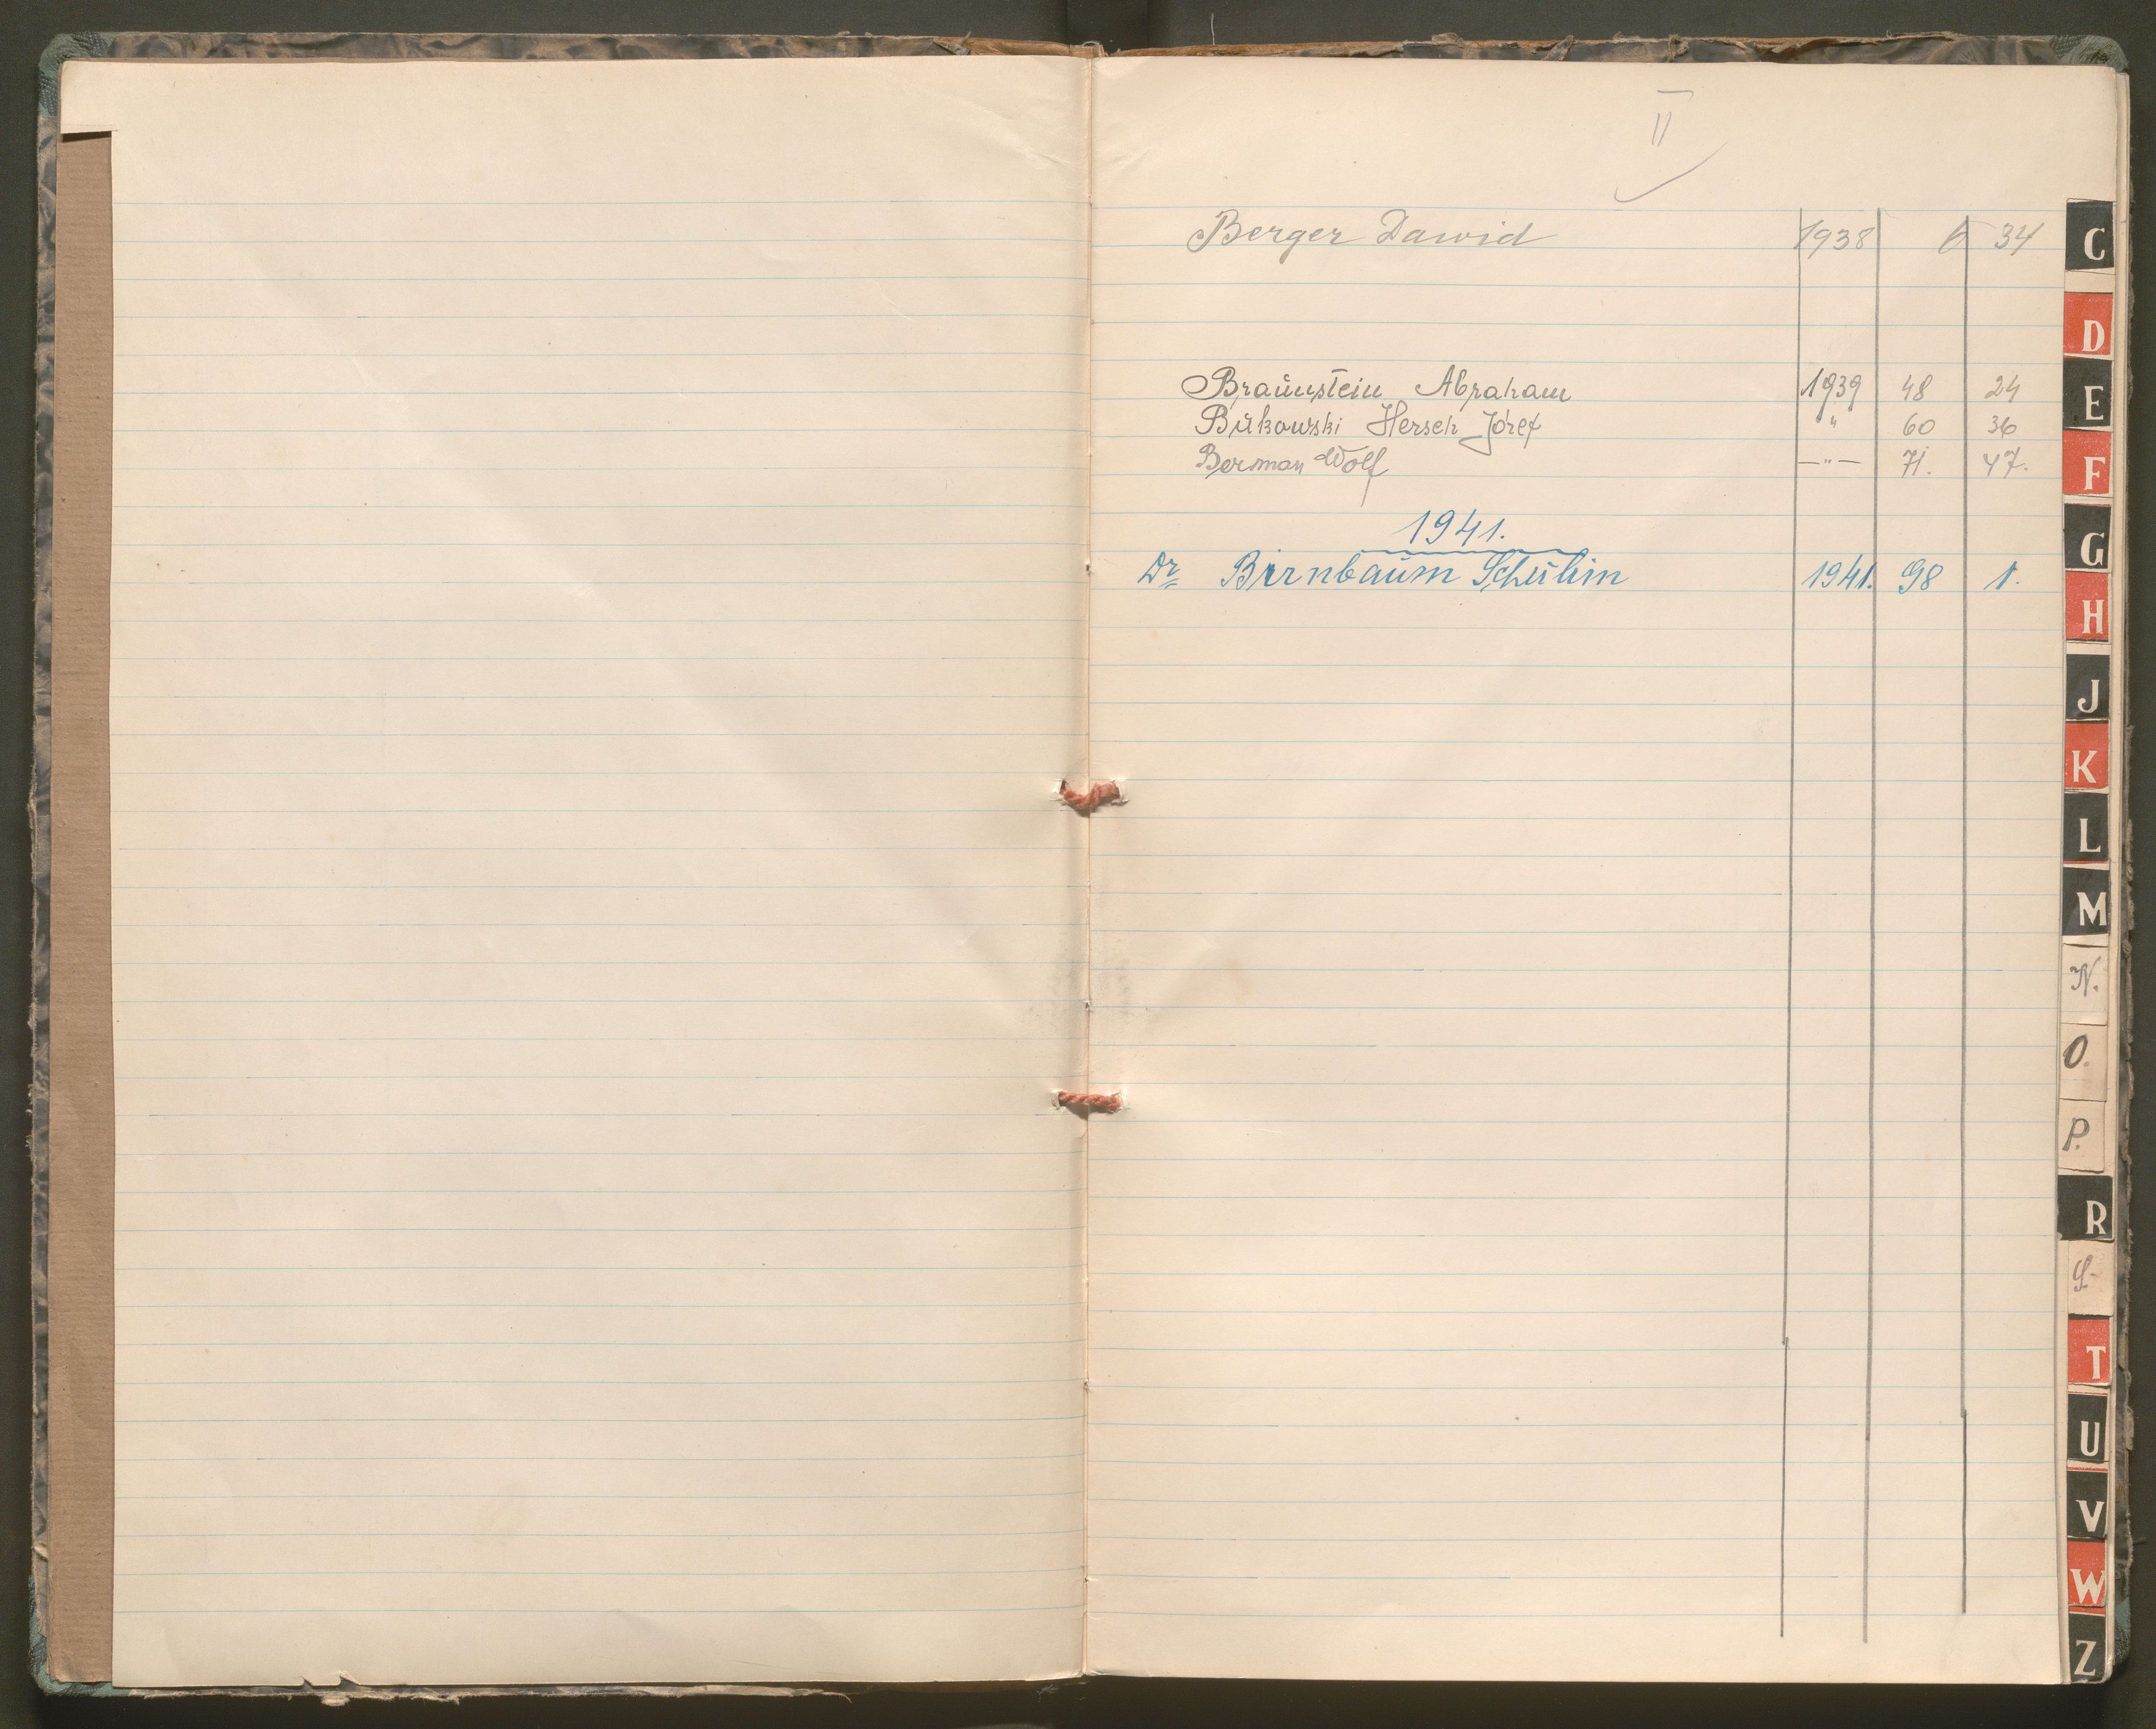 II
Berger Dawid 1938 6 34
Braunstein Abraham 1939 48 24
Bukowski Hersch Józef " 60 36
Berman Wolf —"— 71. 47.
1941.
Dr Birnbaum Schulim 1941. 98 1.
C
D
E
F
G
H
J
K
L
M
N.
O.
P.
R
S.
T
U
V
W
Z